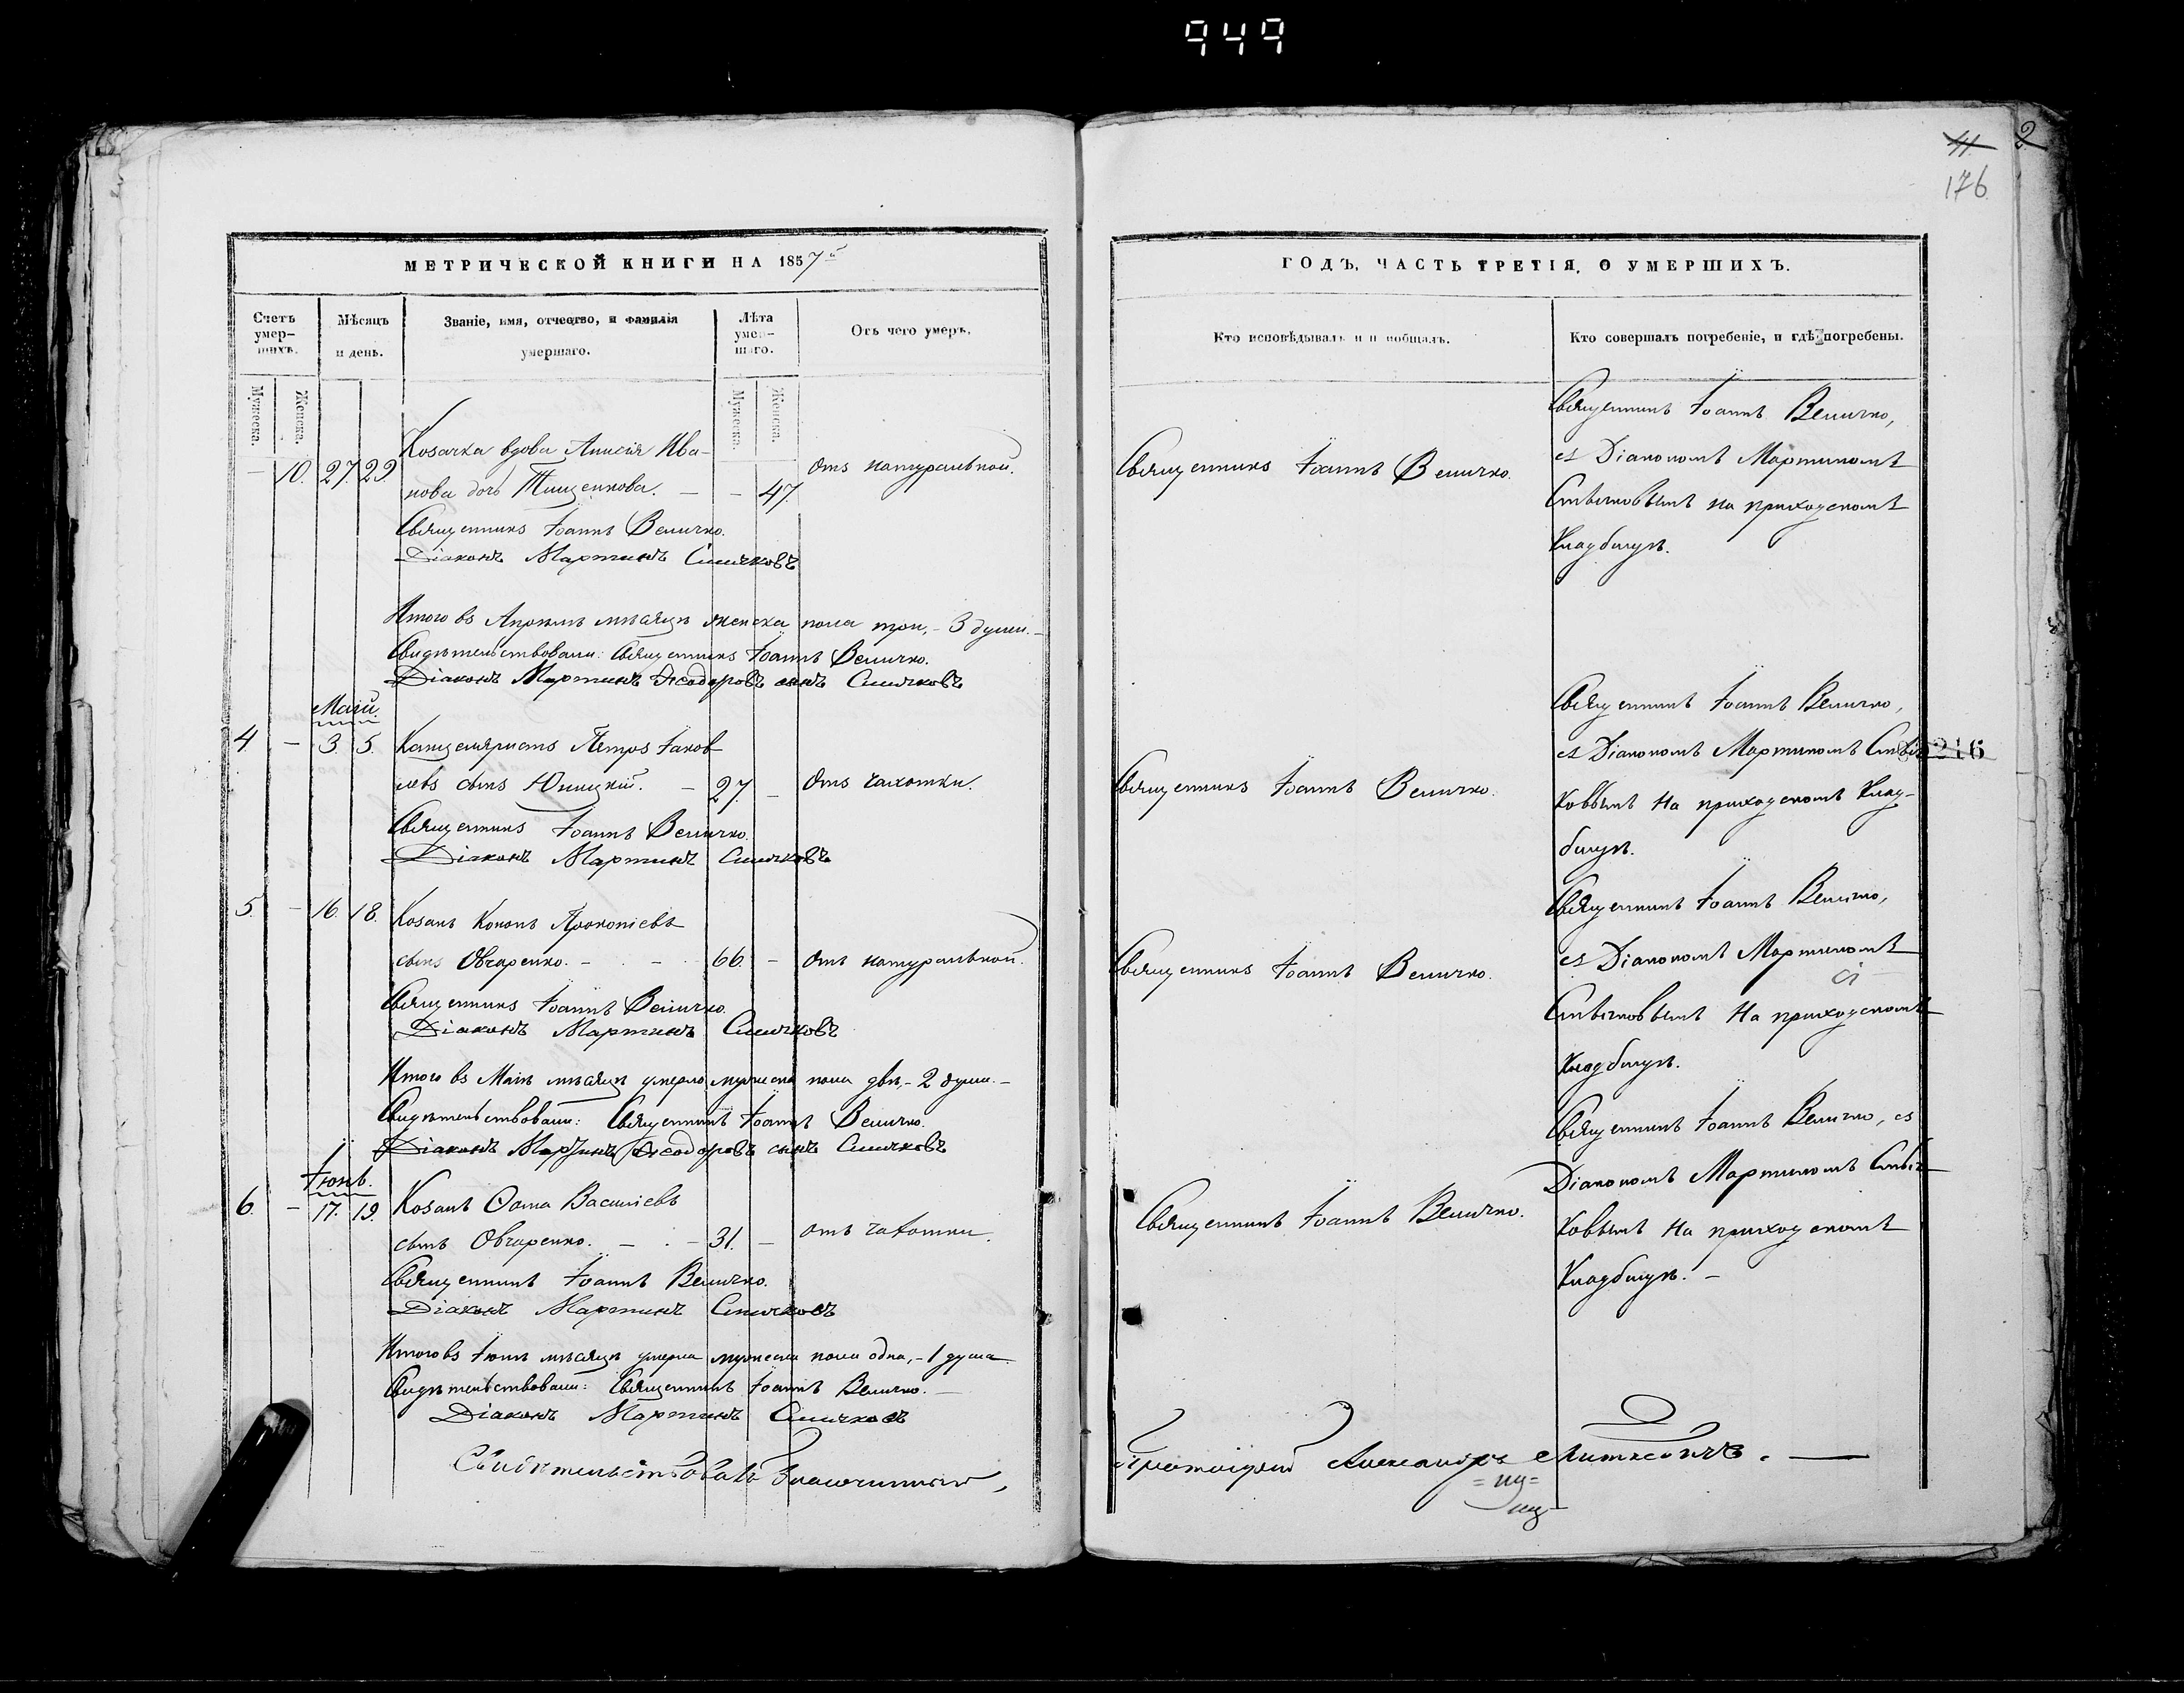 949
2
11.
176
МЕТРИЧЕСКОЙ КНИГИ НА 1857й
Счетъ умер-шихъ.
Мѣсяцъ и день.
Званіе, имя, отчество, и фамилія умершаго.
Лѣта умер-шаго.
Отъ чего умеръ.
Мужеска.
Женска.
Мужеска.
Женска.
Козачка вдова Анисія Ива-
— 10. 27. 29 нова дочь Тищенкова. — — 47. отъ натуральной.
Священникъ Іоаннъ Величко.
Діаконъ Мартинъ Смичковъ
Итого въ Апрѣлѣ мѣсяцѣ женска пола три, - 3 души. —
Свидѣтельствовали: Священникъ Іоаннъ Величко.
Діаконъ Мартинъ Ѳеодоровъ сынъ Смичковъ
Маій.
4. — 3. 5. Канцеляристъ Петръ Іаков
левъ сынъ Юницкій. — 27. — Отъ чахотки.
Священникъ Іоаннъ Величко.
Діаконъ Мартинъ Смичковъ
5. — 16. 18. Козакъ Кононъ Прокопіевъ
сынъ Овчаренко. — — 66. — Отъ натуральной.
Священникъ Іоаннъ Величко.
Діаконъ Мартинъ Смичковъ
Итого въ Маіѣ мѣсяцѣ умерло мужеска пола двѣ, - 2 души. —
Свидѣтельствовали: Священникъ Іоаннъ Величко.
Діаконъ Мартинъ Ѳеодоровъ сынъ Смичковъ
Іюнь.
6. — 17. 19. Козакъ Ѳома Василіевъ
сынъ Овчаренко. — — 31. — отъ чахотки.
Священникъ Іоаннъ Величко.
Діаконъ Мартинъ Смичковъ
Итого въ Іюнѣ мѣсяцѣ умерла мужеска пола одна, - 1 душа
Свидѣтельствовали: Священникъ Іоаннъ Величко. —
Діаконъ Мартинъ Смичковъ
Свидѣтельствовалъ Благочинный,
ГОДЪ, ЧАСТЬ ТРЕТІЯ, О УМЕРШИХЪ.
Кто исповѣдывалъ и пріобщалъ.
Кто совершалъ погребеніе, и гдѣ погребены.
Священникъ Іоаннъ Величко.
Священникъ Іоаннъ Величко,
съ Діакономъ Мартиномъ
Смычковымъ на приходскомъ
Кладбищѣ.
Священникъ Іоаннъ Величко.
Священникъ Іоаннъ Величко,
съ Діакономъ Мартиномъ Смыч
216
ковымъ на приходскомъ Клад-
бищѣ.
Священникъ Іоаннъ Величко.
Священникъ Іоаннъ Величко,
съ Діакономъ Мартиномъ
Смычковымъ на приходскомъ
Кладбищѣ.
Священникъ Іоаннъ Величко.
Священникъ Іоаннъ Величко, съ
Діакономъ Мартиномъ Смыч
ковымъ на приходскомъ
Кладбищѣ. —
Протоіерей Александръ